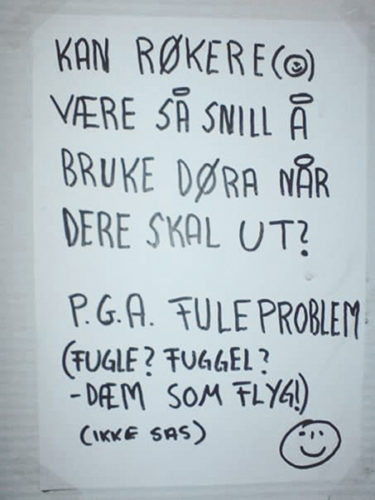 KAN RØKERE(☺)
VÆRE SÅ SNILL Å
BRUKE DØRA NÅR
DERE SKAL UT?
P.G.A. FULEPROBLEM
(FUGLE? FUGGEL?
-DÆM SOM FLYG!)
(IKKE SAS)